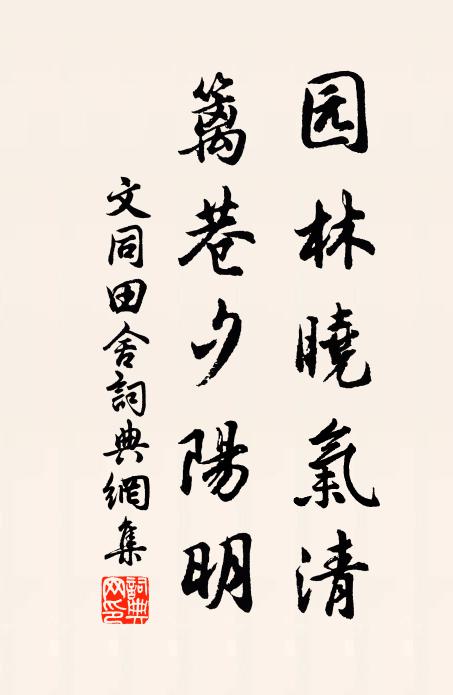 园林曉氣清
篱巷夕陽明
文同田舍詞典網集
詞典網印